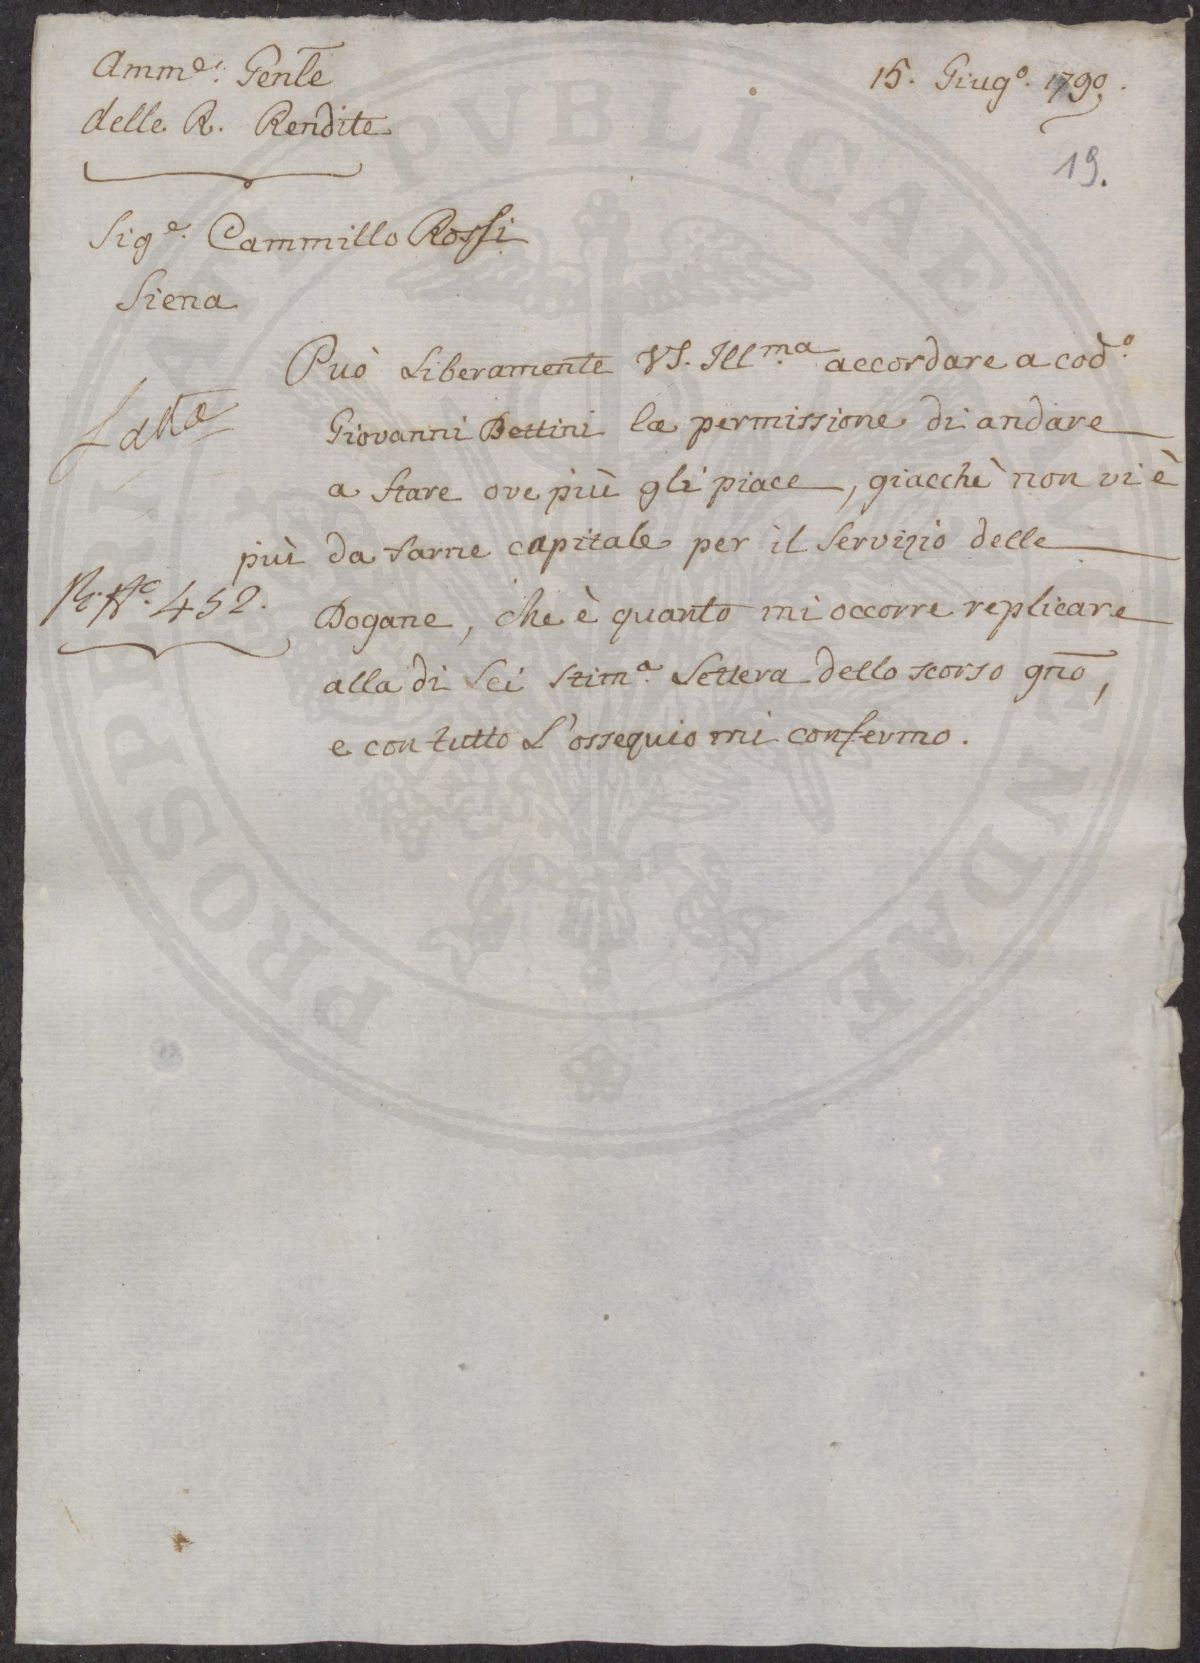 Amm.e Gen̄le
delle R. Rendite
15. Giug.o 1790.
19.
Sig.e Cammillo Rossi
Siena
Può Liberamente VS. Ill.ma accordare a cod.o
Giovanni Bettini la permissione di andare
a Stare ove più gli piace, giacchè non vi è
più da farne capitale per il Servizio delle
Dogane, che è quanto mi occorre replicare
alla di Lei Stim.a Lettera dello scorso gno,
e con tutto L'ossequio mi confermo.
452.
PROSPERITATI PVBLICAE AVGENDAE